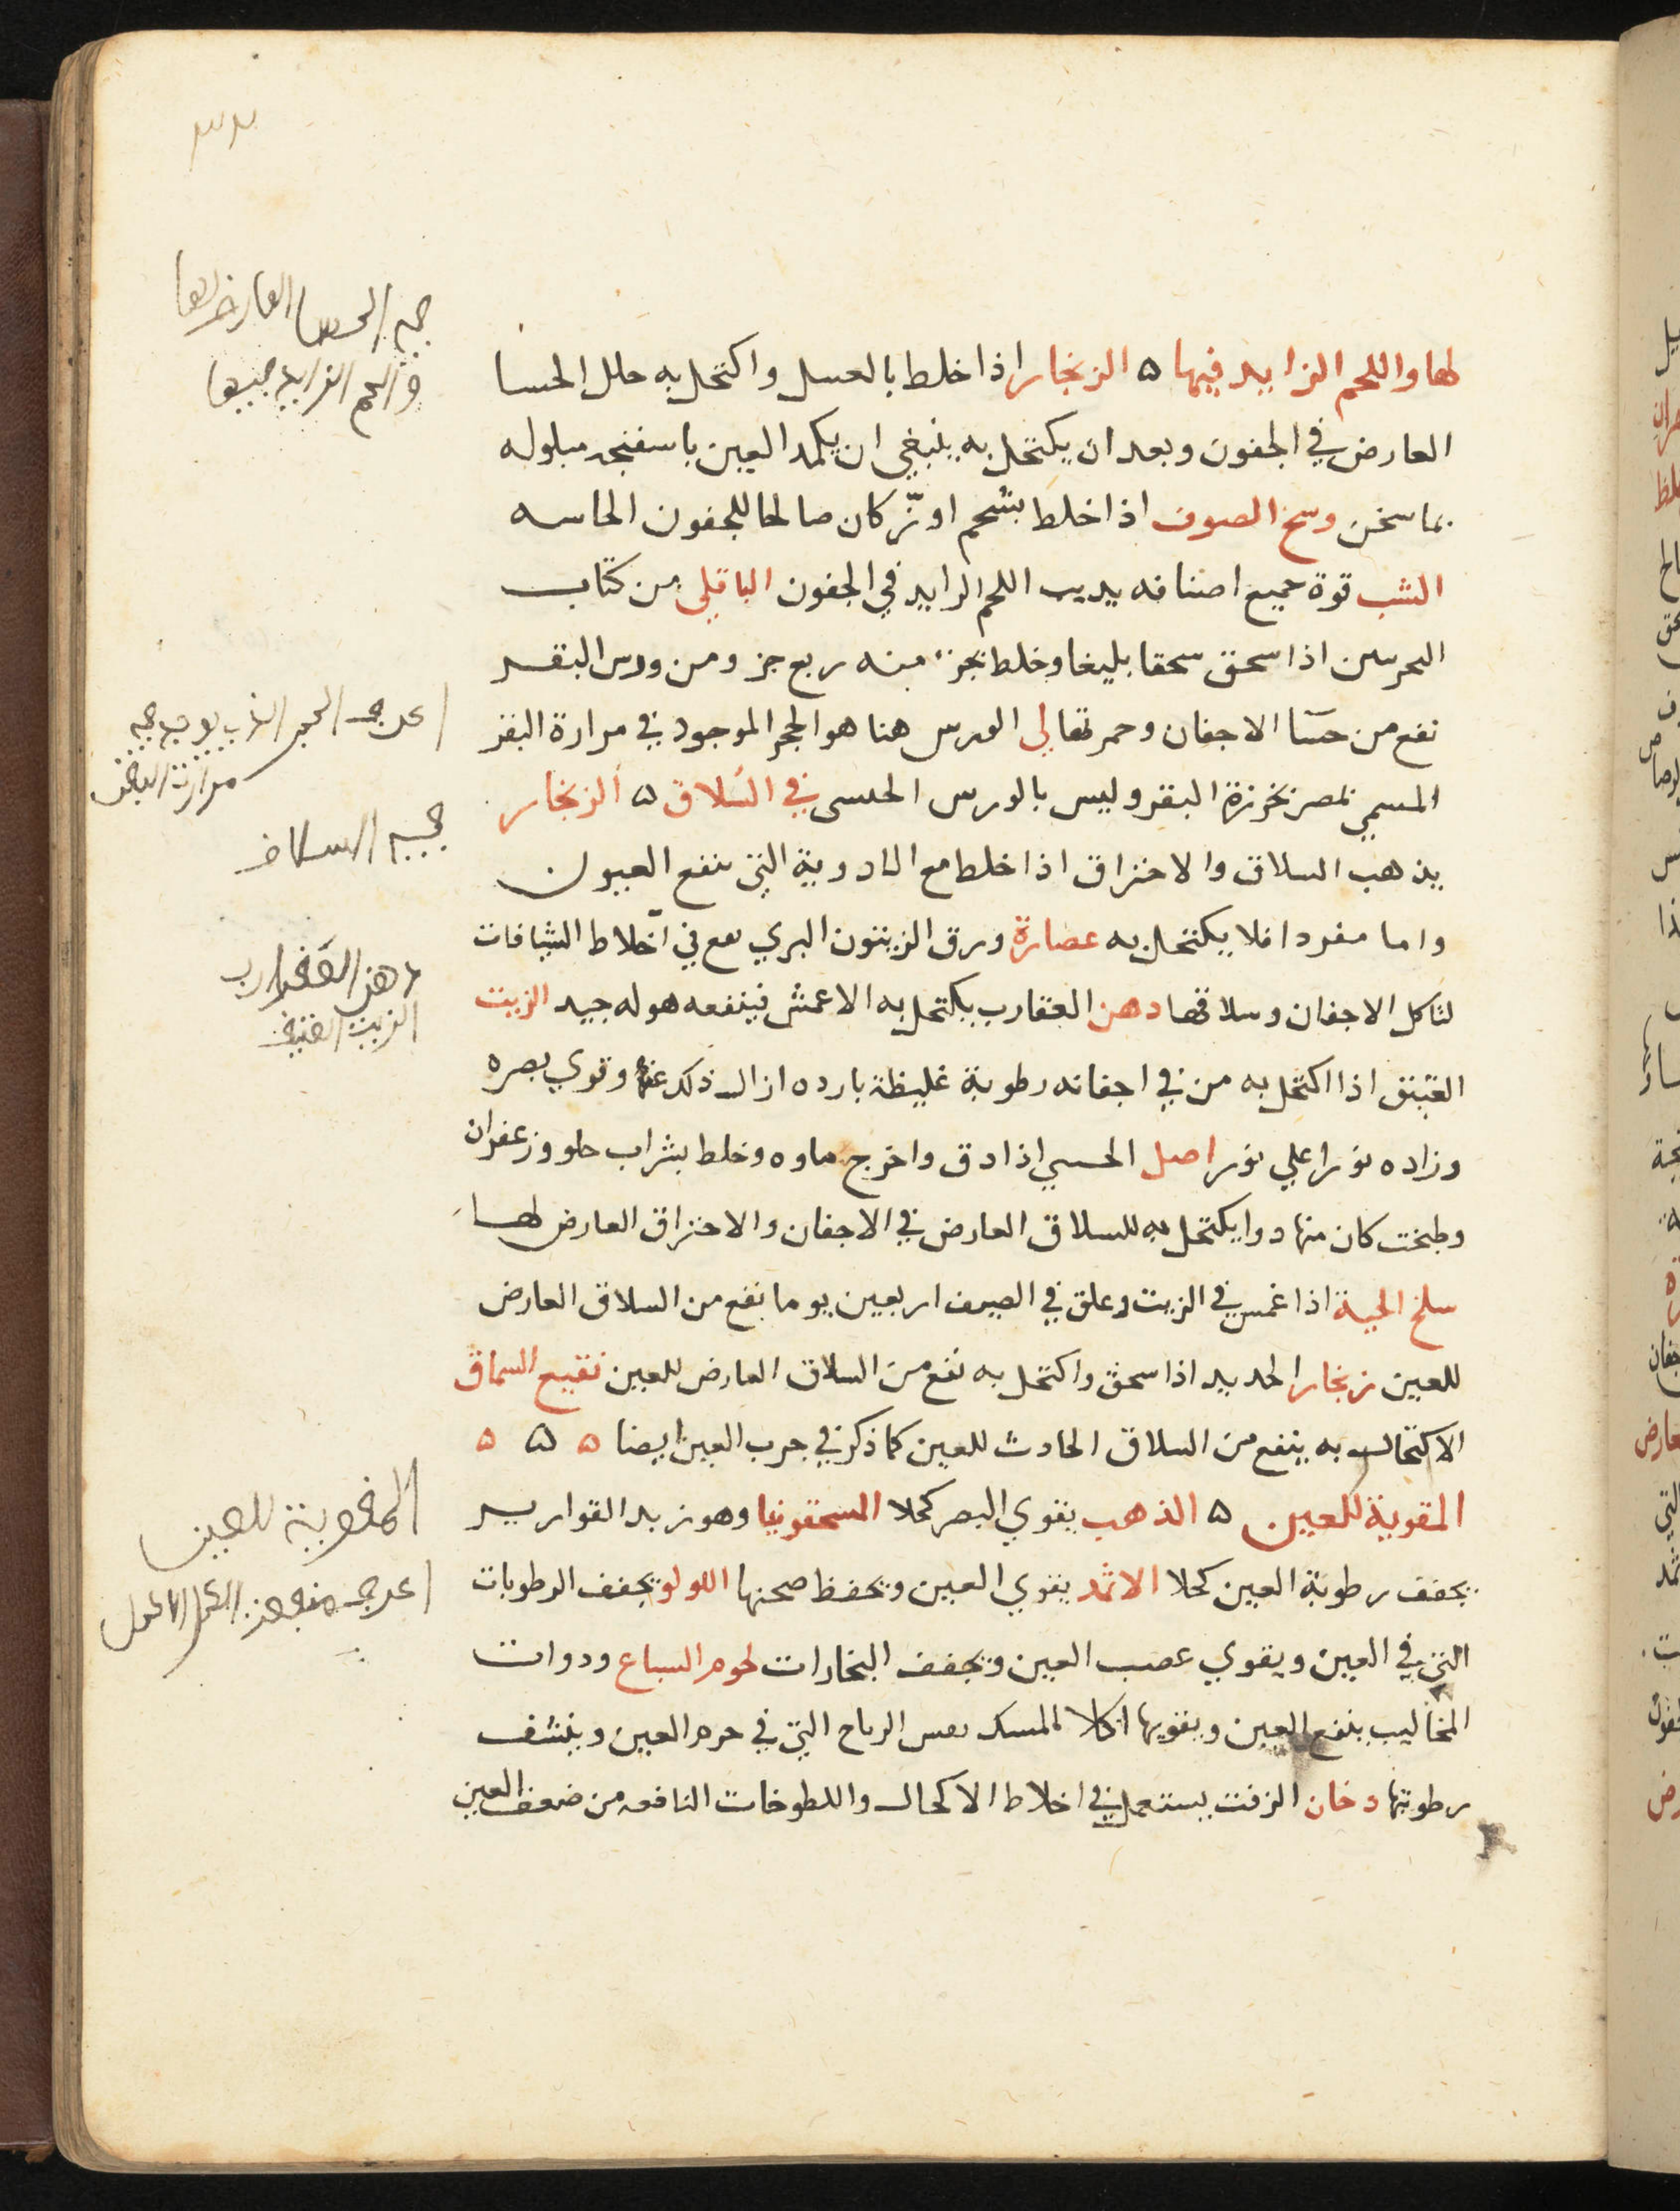 لها واللحم الزايد فيها ه الزنجار اذا خلط بالعسل واكتحل به حلل الحسا
العارض في الجفون وبعد ان يكتحل به ينبغي ان يكمد العين باسفنجه مبلوله
بما سخن وسخ الصوف اذا خلط بشحم اوزّ كان صالحا للجفون الحاسه
الشب قوة جميع اصنافه يديب اللحم الزايد في الجفون الباقلي من كتاب
اذا سحق سحقا بليغا وخلط بجزء منه ربع جز ومن ورس البقر
نفع من حسا الاجفان وحمرتها لي الورس هنا هو الحجر الموجود في مرارة البقر
المسمي بمصر بخرزة البقر وليس بالورس في السلاق ه الزنجار
يذهب السلاق والاحتراق اذا خلط مع الادوية التي تنفع العيون
واما مفردا فلا يكتحل به عصارة ورق الزيتون البري في اخلاط الشيافات
لتاكل الاجفان وسلاقها دهن العقارب يكتحل به الاعمش فينفعه هوله جيد الزيت
العتيق اذا اكتحل به من في اجفانه رطوبة غليظة بارده ازال ذلك عنها وقوي بصره
وزاده نورا علي نور اصل اذا دق واخرج ماوه وخلط بشراب حلو وزعفران
وطبخت كان منها دوا يكتحل به للسلاق العارض في الاجفان والاحتراق العارض لها
سلخ الحية اذا غمس في الزيت وعلق في الصيف اربعين يوما نفع من السلاق العارض
للعين زنجار الحديد اذا سحق واكتحل به نفع من السلاق العارض للعين نقيع السماق
الاكتحال به ينفع من السلاق الحادث للعين كما ذكر في جرب العين ايضا ه ه ه
المقوية للعين ه الذهب يقوي البصر كحلا المسحقونيا وهو زبد القوارير
يجفف رطوبة العين كحلا الاثمد يقوي العين ويحفظ صحتها اللولو يجفف الرطوبات
التي في العين ويقوي عصب العين ويجفف البخارات لحوم السباع ودوات
المخاليب ينفع العين ويقويها اكلا المسك الرياح التي في جرم العين وينشف
رطوبتها دخان الزفت يستعمل في اخلاط الاكحال واللطوخات النافعه من ضعف العين
العارض لها
السلاق
دهن العقارب
الزيت العتيق
المقوية للعين